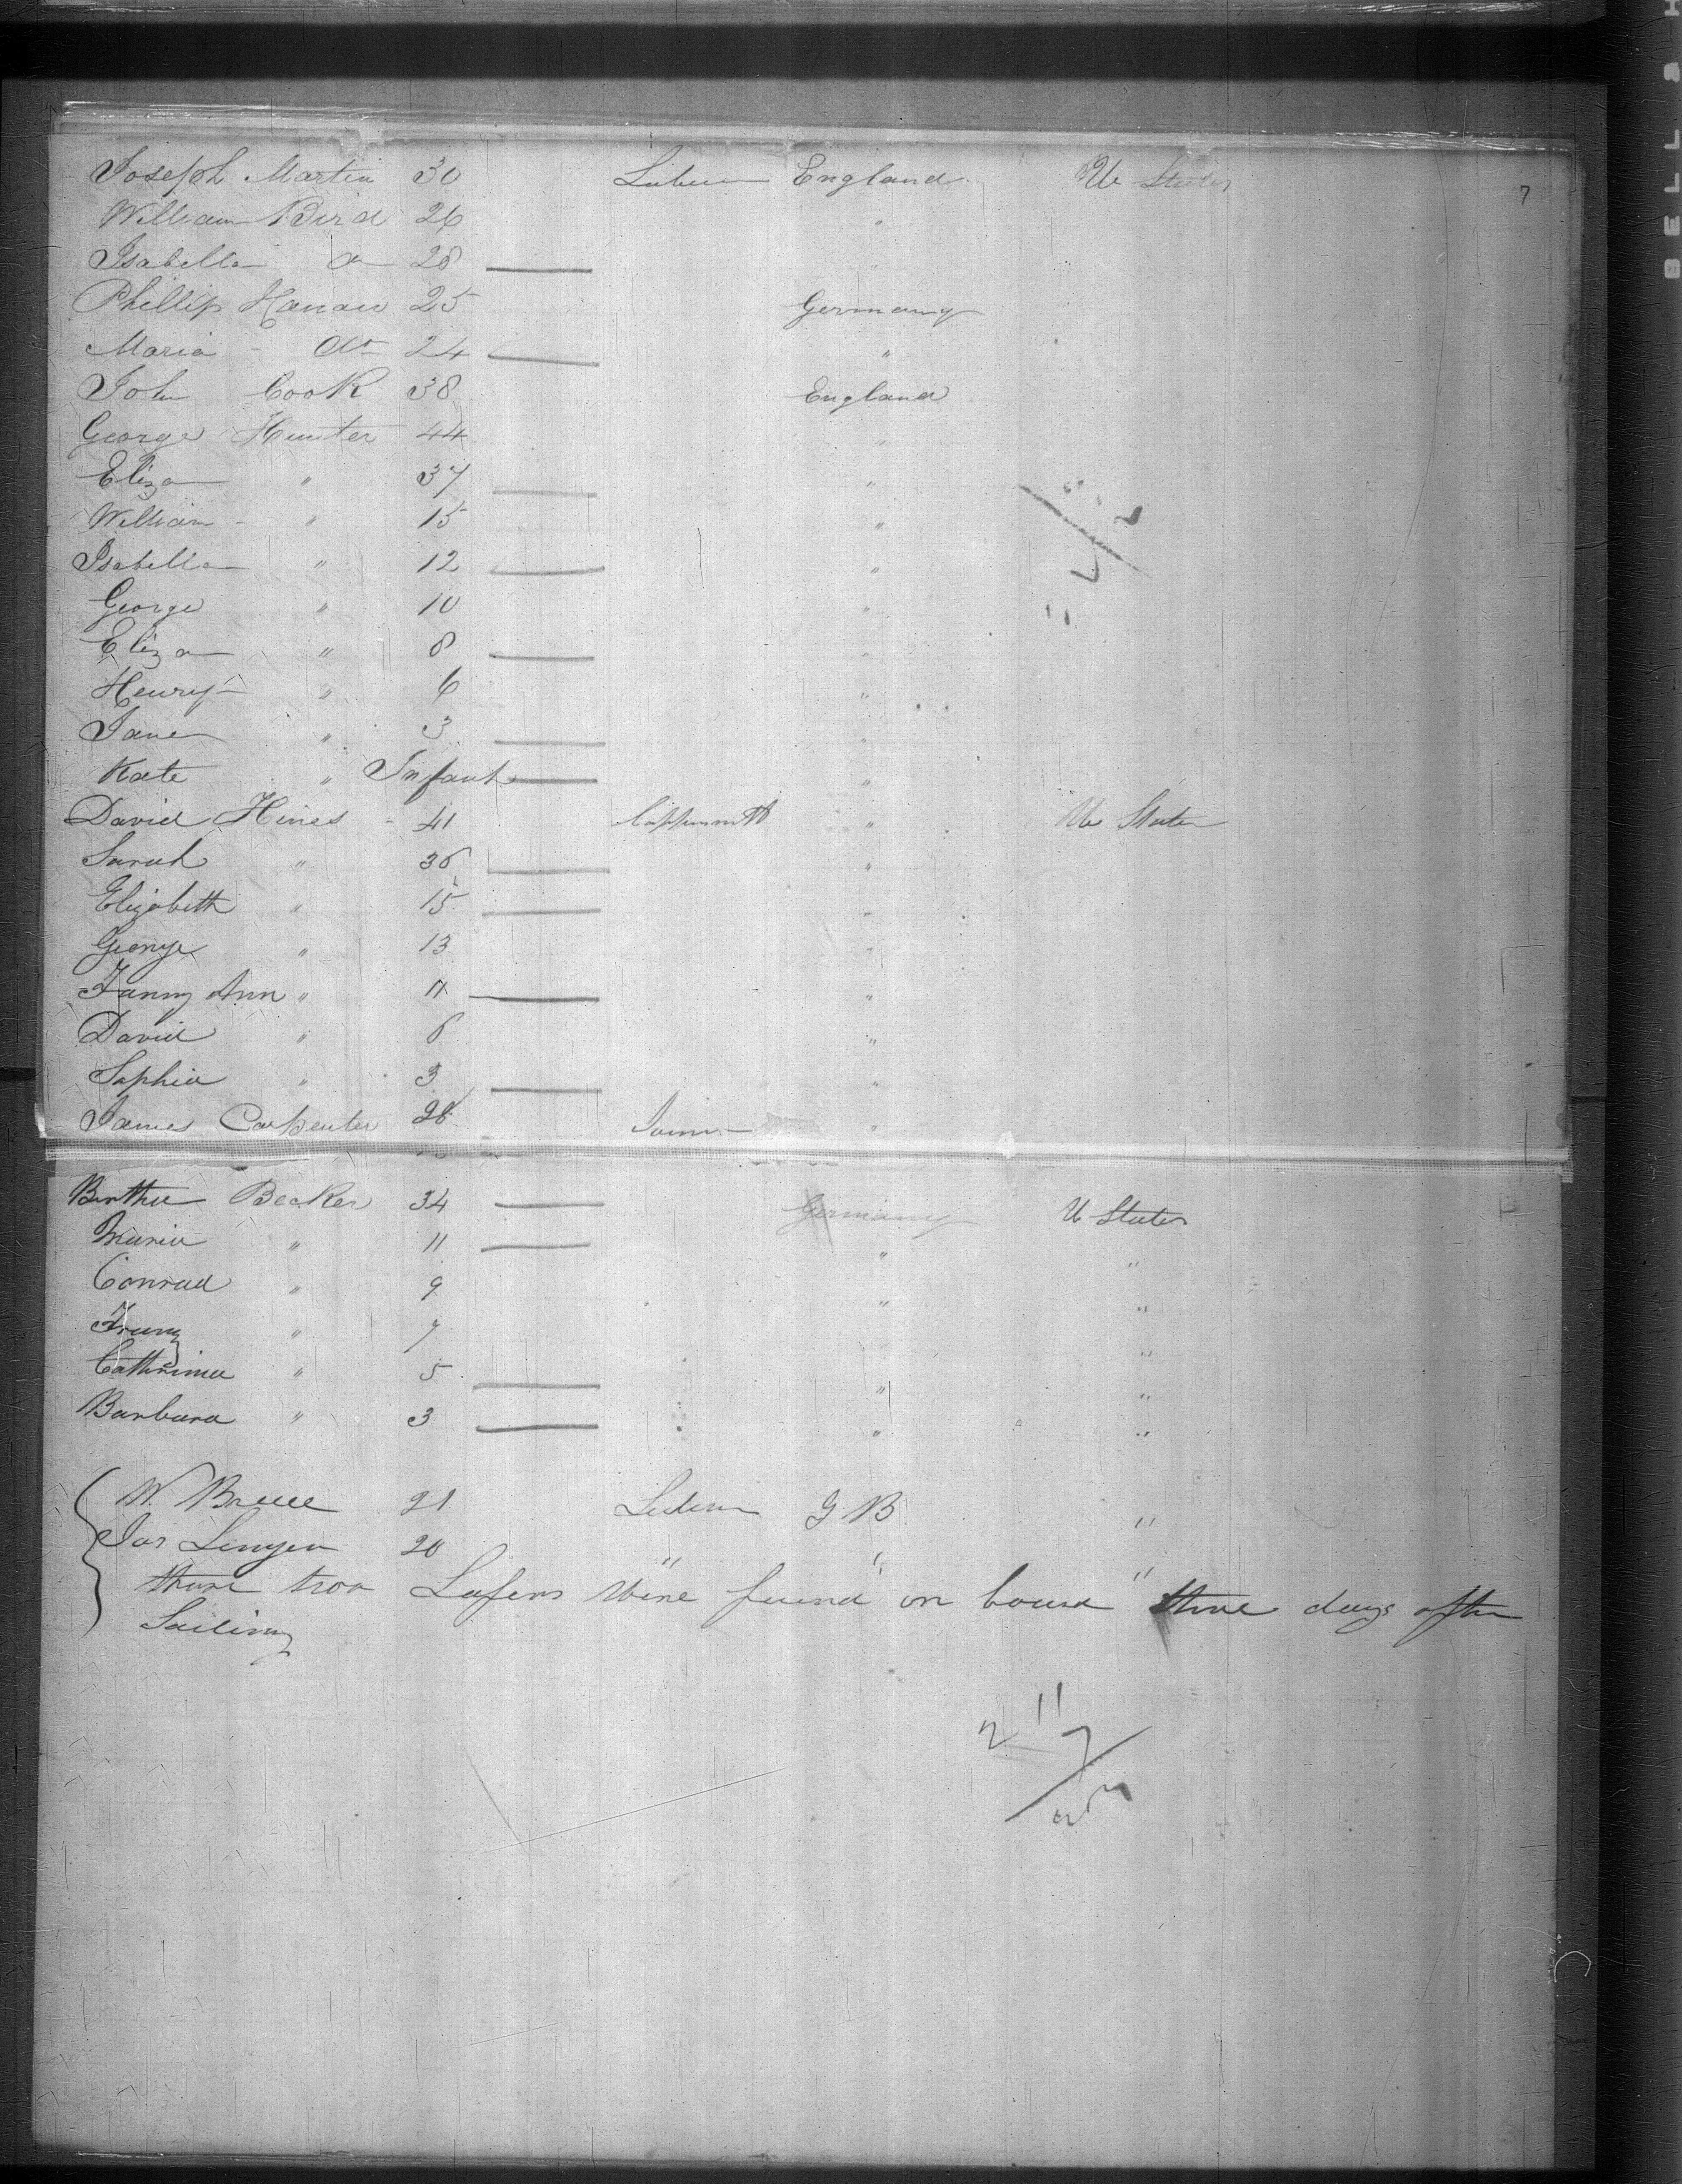 7
Joseph Martin 30 Labur England U States
William Bird 26 "
Isabella Do 28 "
Phillip Hanau 25 Germany
Maria - Do 24 "
John Cook 38 England
George Hunter 44 "
Eliza " 37 "
William - " 15 "
Isabella " 12 "
George " 10 "
Eliza " 8 "
Henry " 6 "
Jane " 3 "
Kate " Infant "
David Hines - 41 Coppersmith " U States
Sarah " 36 "
Elizabeth " 15 "
George " 13 "
Fanny Ann " 11 "
David " 8 "
Sophia " 3 "
James Carpenter 28 Joiner "
Berthe Becker 34 Germany U States
Maria " 11 " "
Conrad " 9 " "
Franz " 7 " "
Cathrina " 5 " "
Barbara " 3 " "
W. Bruce 21 G B "
Jas 20 " " "
these two were found on board three days after
Sailing
BELL & H